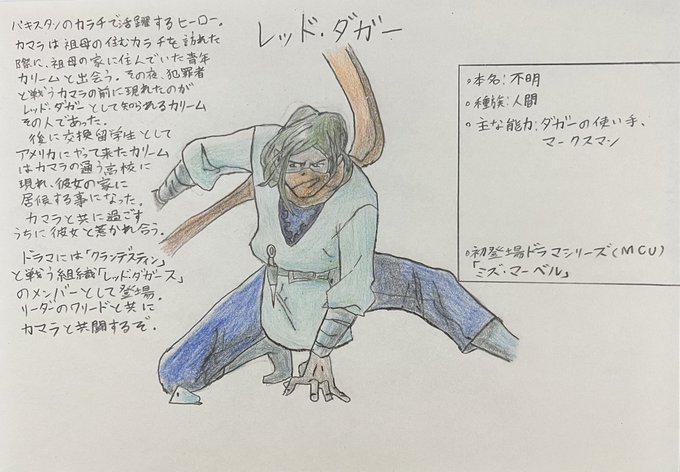 レッド・ダガー
パキスタンのカラチで活躍するヒーロー。
カマラは祖母の住むカラチを訪れた
際に、祖母の家に住んでいた青年
カリームと出会う。その夜、犯罪者
と戦うカマラの前に現れたのが
レッド・ダガーとして知られるカリーム
その人であった。
後に交換留学生として
アメリカにやって来たカリーム
はカマラの通う高校に
現れ、彼女の家に
居候する事になった。
カマラと共に過ごす
うちに彼女と惹かれ合う。
ドラマには「クランデスティン」
と戦う組織「レッド・ダガース」
のメンバーとして登場。
リーダーのワリードと共に
カマラと共闘するぞ。
◦本名:不明
◦種族:人間
◦主な能力:ダガーの使い手、
マークスマン
◦初登場ドラマシリーズ(MCU)
「ミズ・マーベル」